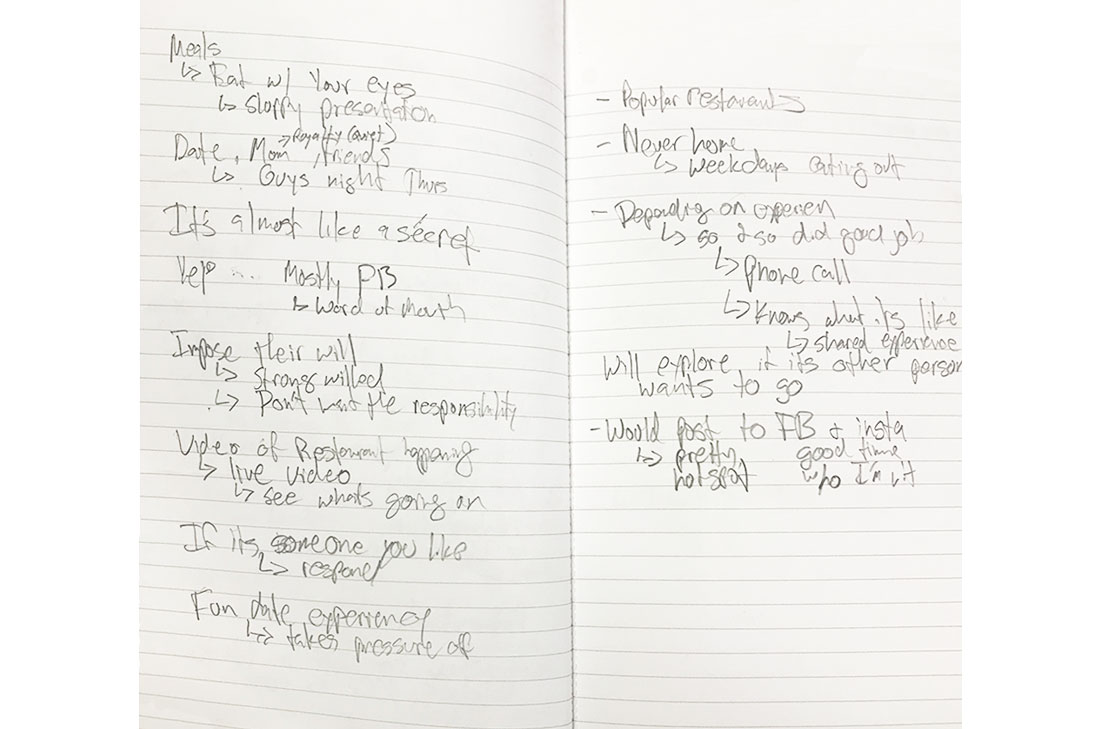 Meals
↳ Eat w/ Your eyes
↳ Sloppy presentation
→ Royalty (Quiet)
Date, Mom, friends
↳ Guys night Thurs
It's almost like a secret
... Mostly FB
↳ Word of Mouth
Impose their will
↳ Strong willed
↳ Don't want the responsibility
Video of Restaurant happening
↳ live video
↳ see whats going on
If its someone you like
↳ respond
Fun date experience
↳ takes pressure off
- Popular restaurants
- Never home
↳ weekdays eating out
- Depending on experien
↳ so & so did good job
↳ Phone call
↳ Knows what its like
↳ shared experience
Will explore if its other person
wants to go
- Would post to FB & insta
↳ pretty, good time
hotspot who I'm w/